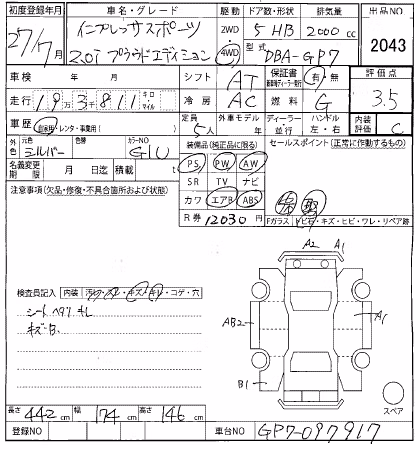 初度登録年月 車名・グレード 駆動 ドア数・形状 排気量 出品NO
27/7月 インプレッサスポーツ 2WD 5 HB 2000 cc
2.0i プラウドエディション 4WD 型式 DBA-GP7 2043
車検 年 月 シフト AT 保証書 有・無 評価点
走行 1 9 3 8 1 1 キロ マイル 冷房 AC 燃料 G 3.5
車歴 自家用・レンタ・事業用( ) 定員 5人 外車モデル ディーラー・並行 ハンドル 左・右 内装評価 C
外色 元色 シルバー 色替 カラーNO G1U 装備品(純正品に限る) セールスポイント(正常に作動するもの)
名義変更期限 月 日迄 積載 t PS PW AW
注意事項(欠品・修復・不具合箇所および状態) SR TV ナビ
カワ エアB ABS
R券 12030円 Fガラス 飛石・キズ・ヒビ・ワレ・リペア跡
A2 A1
検査員記入 内装 汚れ・スレ・キズ・キレ・コゲ・穴
シート ヘタリ キレ
キズB.
AB2 A1
B1
スペア
長さ 442 cm 幅 174 cm 高さ 146 cm
登録NO 車台NO GP7-097917